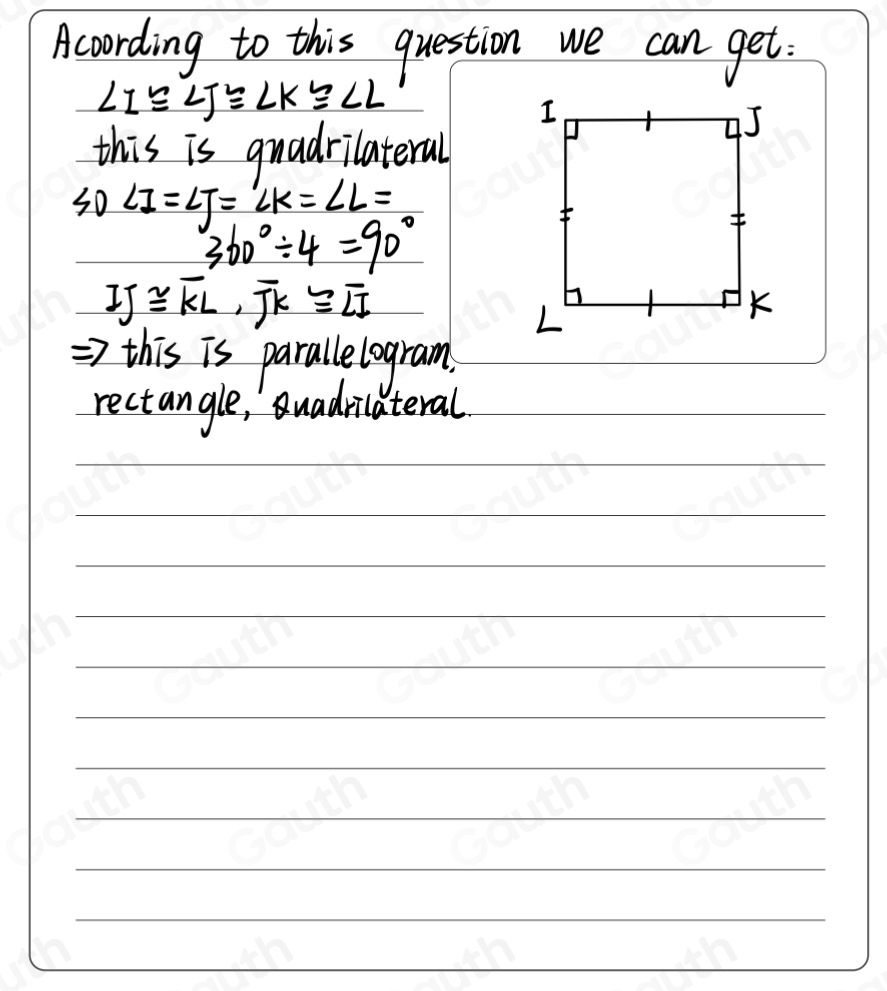 Acoording to this question we can get:
∠I ≅ ∠J ≅ ∠K ≅ ∠L
this is qnadrilateral
so ∠I = ∠J = ∠K = ∠L =
360° ÷ 4 = 90°
IJ ≅ K̅L̅, J̅K̅ ≅ L̅I̅
=> this is parallelogram,
rectangle, Quadrilateral.
I
J
L
K
Gauth